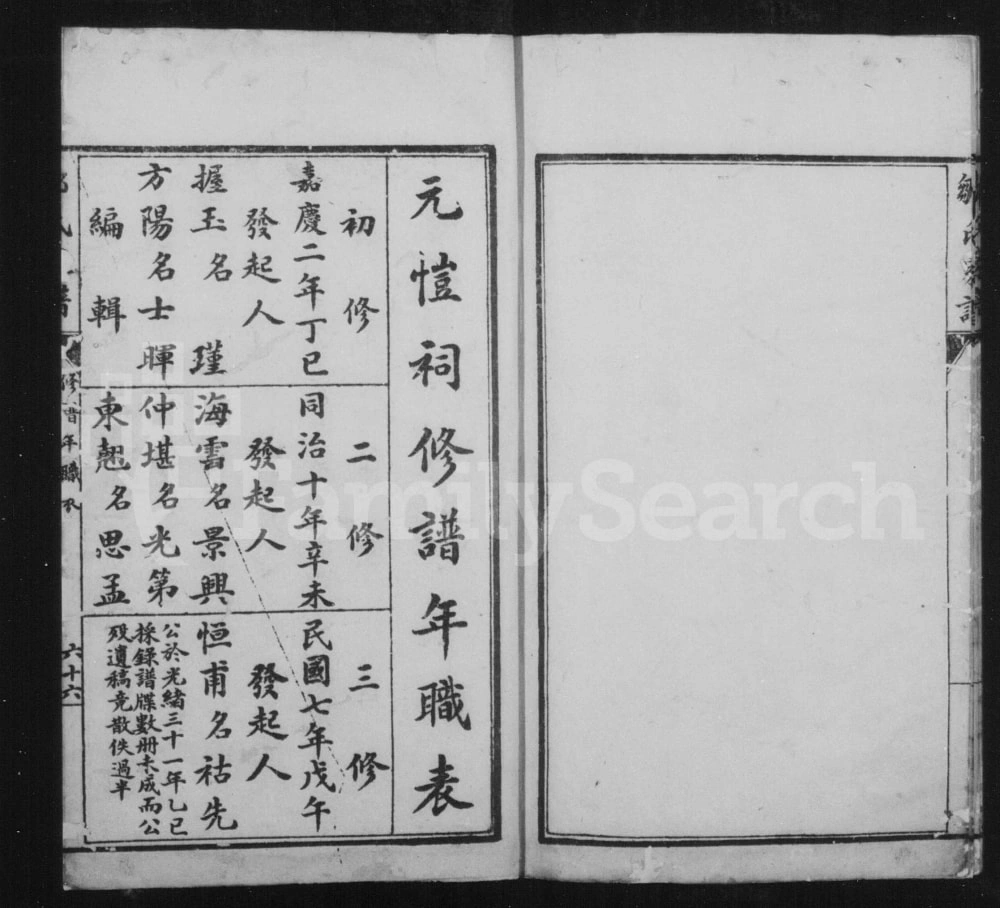 鄒氏家譜
元愷祠修譜年職表
初修
嘉慶二年丁巳
發起人
握玉名瑾
方陽名士暉
編輯
二修
同治十年辛未
發起人
海雲名景興
仲堪名光第
東翹名思孟
三修
民國七年戊午
發起人
恒甫名祜先
公於光緒三十一年乙巳
採錄譜牒數冊未成而公
歿遺稿竟散佚過半
修譜年職表
六十六
FamilySearch